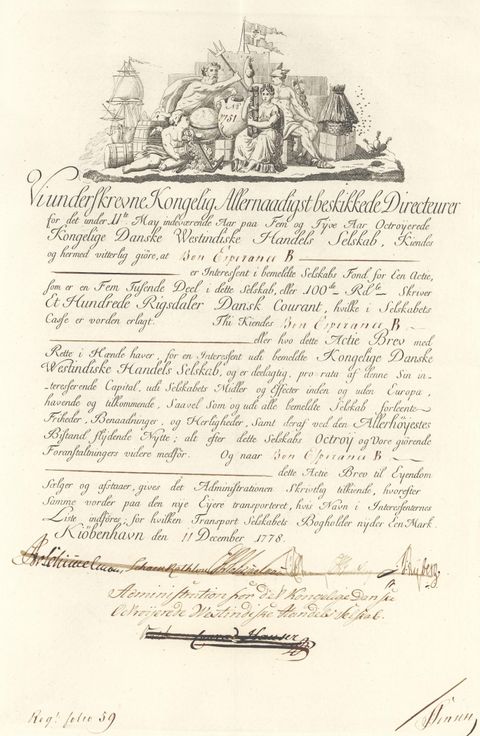 No
1751
Vi underskrevne Kongelig Allernaadigst beskikkede Directeurer
for det under 11te May indeværende Aar paa Fem og Tyve Aar Octroyerede
Kongelige Danske Westindiske Handels Selskab, Kiendes
og hermed vitterlig giöre, at Bon Esperance B
er Interesent i bemeldte Selskabs Fond for Een Actie,
som er en Fem Tusende Deel i dette Selskab, eller 100de Rdlr Skriver
Et Hundrede Rigsdaler Dansk Courant, hvilke i Selskabets
Casse er vorden erlagt. Thi Kiendes Bon Esperance B
eller hvo dette Actie Brev med
Rette i Hænde haver, for en Interessent udi bemeldte Kongelige Danske
Westindiske Handels Selskab, og er deelagtig, pro rata af denne Sin in-
teresserende Capital, udi Selskabets Midler og Effecter inden og uden Europa,
havende og tilkommende, Saavel Som og udi alle bemeldte Selskab forleente
Friheder, Benaadninger, og Herligheder, Samt deraf ved den Allerhöyestes
Bistand flydende Nytte; alt efter dette Selskabs Octroy og Vore giörende
Foranstaltninger videre medför. Og naar Bon Esperance B
dette Actie Brev til Eyendom
Sælger og afstaaer, gives det Administrationen Skriftlig tilkiende, hvorefter
Samme vorder paa den nye Eyere transporteret, hvis Navn i Interessenternes
Liste indföres, for hvilken Transport Selskabets Bogholder nyder Een Mark.
Kiöbenhavn den 11 December 1778.
Schimmelmann Schack Rathlou Ryberg
Administration for det Kongelige Danske
Octroijerede Westindiske Handels Selskab.
Regt folio 59